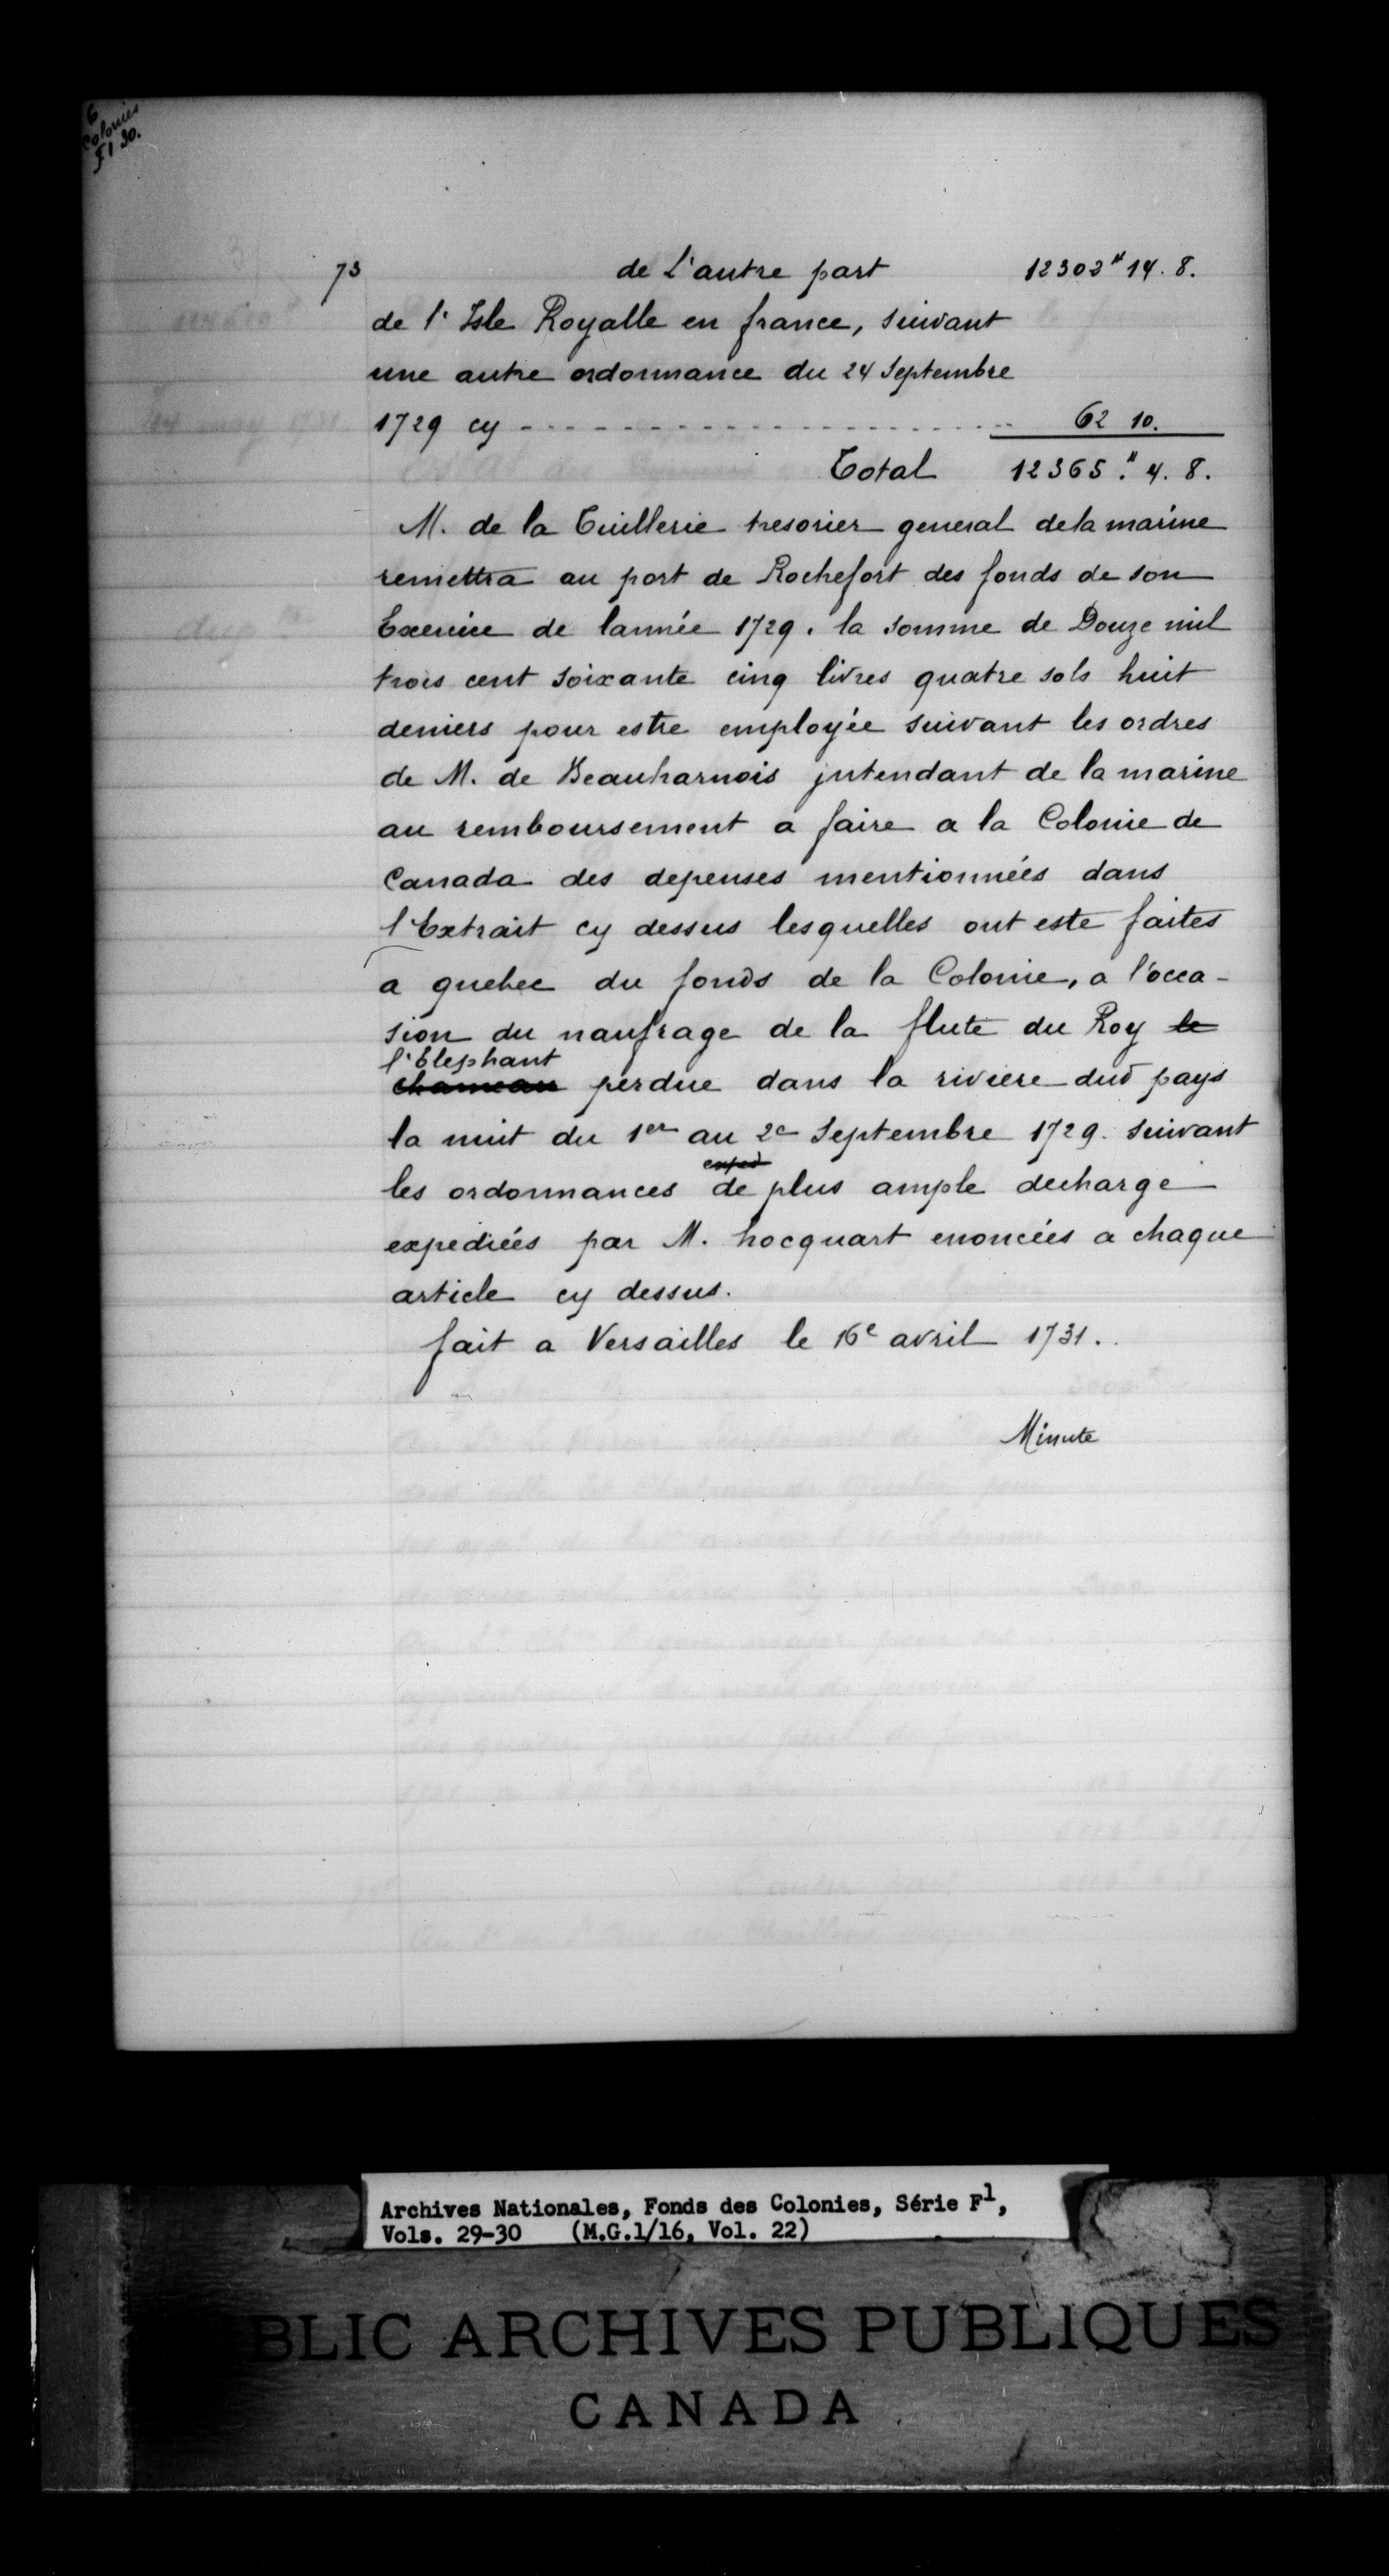 6
Colonies
F1 30.
73 de L'autre part 12302# 14. 8.
de l'Isle Royalle en france, suivant
une autre ordonnance du 24 Septembre
1729 cy - - - - - - - - - - - - - - - - - - - - 62 10.
Total 12365.# 4. 8.
M. de la Tuillerie tresorier general de la marine
remettra au port de Rochefort des fonds de son
Exercice de lannée 1729. la somme de Douze mil
trois cent soixante cinq livres quatre sols huit
deniers pour estre employée suivant les ordres
de M. de Beauharnois jntendant de la marine
au remboursement a faire a la Colonie de
Canada des depenses mentionnées dans
l'Extrait cy dessus lesquelles ont este faites
a quebec du fonds de la Colonie, a l'occa-
sion du naufrage de la flute du Roy le
l'Elephant
chameau perdue dans la riviere dud pays
la nuit du 1er au 2e Septembre 1729. suivant
exped
les ordonnances de plus ample decharge
expediées par M. hocquart enoncées a chaque
article cy dessus.
fait a Versailles le 16e avril 1731.
Minute
Archives Nationales, Fonds des Colonies, Série F1,
Vols. 29-30 (M.G.1/16, Vol. 22)
BLIC ARCHIVES PUBLIQUES
CANADA